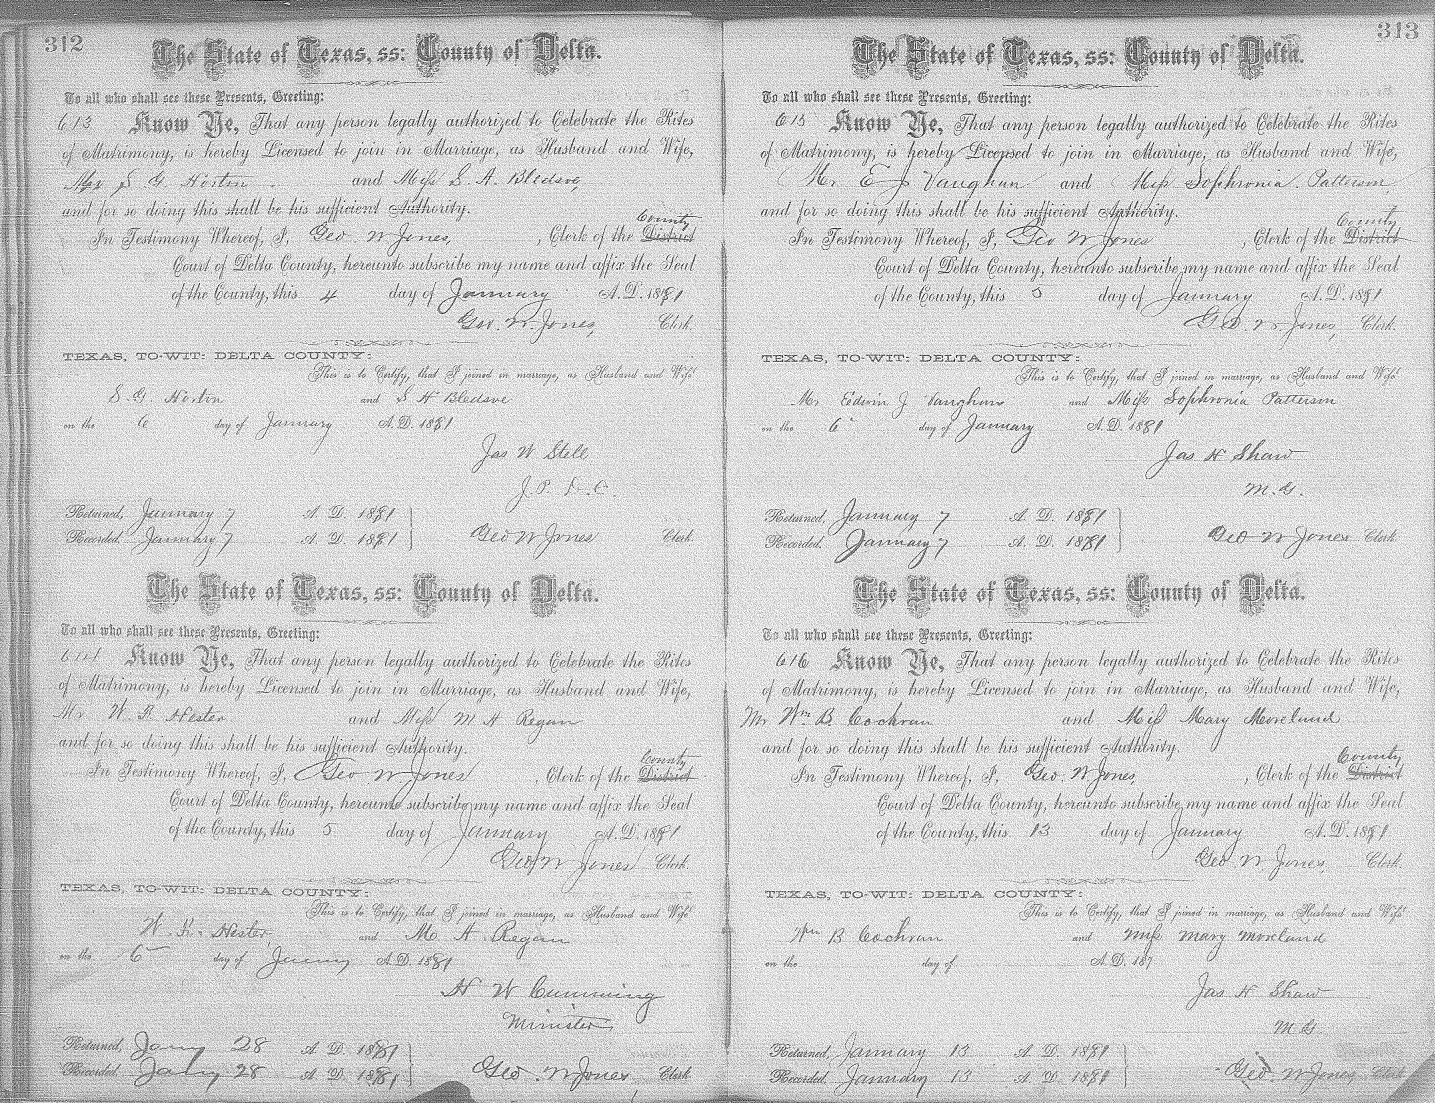 312
The State of Texas, ss: County of Delta.
To all who shall see these Presents, Greeting:
613 Know Ye, That any person legally authorized to Celebrate the Rites
of Matrimony, is hereby Licensed to join in Marriage, as Husband and Wife,
Mr S G Horton and Miss S. A. Bledsoe,
and for so doing this shall be his sufficient Authority.
County
In Testimony Whereof, I, Geo. W Jones, , Clerk of the District
Court of Delta County, hereunto subscribe my name and affix the Seal
of the County, this 4 day of January A.D. 1881
Geo. W Jones, Clerk.
TEXAS, TO-WIT: DELTA COUNTY:
This is to Certify, that I joined in marriage, as Husband and Wife
S. G. Horton and S H Bledsoe
on the 6 day of January A.D. 1881
Jas W Stell
J. P. D. C.
Returned, January 7 A. D. 1881
Recorded, January 7 A. D. 1881 Geo W Jones Clerk
The State of Texas, ss: County of Delta.
To all who shall see these Presents, Greeting:
614 Know Ye, That any person legally authorized to Celebrate the Rites
of Matrimony, is hereby Licensed to join in Marriage, as Husband and Wife,
Mr W. F. Hester and Miss M A Regan
and for so doing this shall be his sufficient Authority.
County
In Testimony Whereof, I, Geo W Jones , Clerk of the District
Court of Delta County, hereunto subscribe my name and affix the Seal
of the County, this 5 day of January A.D. 1881
Geo W Jones Clerk
TEXAS, TO-WIT: DELTA COUNTY:
This is to Certify, that I joined in marriage, as Husband and Wife
W. F. Hester, and M A Regan
on the 6 day of January A.D. 1881
H W Cumming
Minister,
Returned, Jany 28 A. D. 1881
Recorded, Jany 28 A. D. 1881 Geo. W Jones, Clerk
313
The State of Texas, ss: County of Delta.
To all who shall see these Presents, Greeting:
615 Know Ye, That any person legally authorized to Celebrate the Rites
of Matrimony, is hereby Licensed to join in Marriage, as Husband and Wife,
Mr E J Vaughun and Miss Sophronia Patterson
and for so doing this shall be his sufficient Authority.
County
In Testimony Whereof, I, Geo W Jones , Clerk of the District
Court of Delta County, hereunto subscribe my name and affix the Seal
of the County, this 5 day of January A.D. 1881
Geo. W Jones, Clerk.
TEXAS, TO-WIT: DELTA COUNTY:
This is to Certify, that I joined in marriage, as Husband and Wife
Mr Edwin J Vaughun and Miss Sophronia Patterson
on the 6 day of January A.D. 1881
Jas H Shaw
M. G.
Returned, January 7 A. D. 1881
Recorded, January 7 A. D. 1881 Geo W Jones Clerk
The State of Texas, ss: County of Delta.
To all who shall see these Presents, Greeting:
616 Know Ye, That any person legally authorized to Celebrate the Rites
of Matrimony, is hereby Licensed to join in Marriage, as Husband and Wife,
Mr Wm B. Cochran and Miss Mary Moreland
and for so doing this shall be his sufficient Authority.
County
In Testimony Whereof, I, Geo. W Jones, , Clerk of the District
Court of Delta County, hereunto subscribe my name and affix the Seal
of the County, this 13 day of January A.D. 1881
Geo W Jones, Clerk.
TEXAS, TO-WIT: DELTA COUNTY:
This is to Certify, that I joined in marriage, as Husband and Wife
Wm B Cochran and Miss Mary Moreland
on the day of A. D. 187
Jas H Shaw
M G
Returned, January 13 A. D. 1881
Recorded, January 13 A. D. 1881 Geo. W Jones Clerk